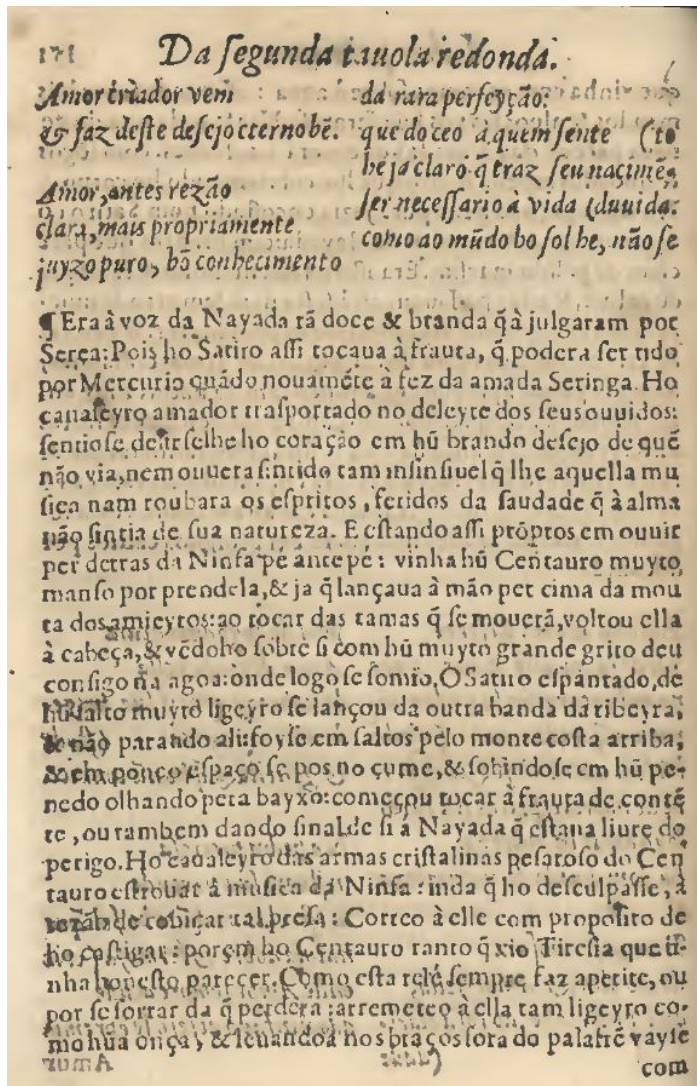 Da segunda tauola redonda.
Amor criador vem
& faz deste desejo eterno bẽ.
Amor, antes rezão
clara, mais propriamente
juyzo puro, bõ conhecimento
da rara perfeyção:
que do ceo à quem sente (to
he ja claro q̃ traz seu naçimẽ-
ser necessario à vida (duuida:
como ao mũdo ho sol he, não se
¶ Era à voz da Nayada tã doce & branda q̃ à julgaram por
Serea: Pois ho Satiro assi tocaua à frauta, q̃ podera ser tido
por Mercurio quãdo nouamẽte à fez da amada Seringa. Ho
caualeyro amador trasportado no deleyte dos seus ouuidos:
sentiose desfrselhe ho coração em hũ brando desejo de quẽ
não via, nem ouuera sintido tam insinsiuel q̃ lhe aquella mu
sica nam roubara os espritos, feridos da saudade q̃ à alma
não sintia de sua natureza. E estando assi prõptos em ouuir
per detras da Ninfa pé ante pé: vinha hũ Centauro muyto
manso por prendela, & ja q̃ lançaua à mão per cima da mou
ta dos amieyros: ao tocar das ramas q̃ se mouerã, voltou ella
à cabeça, & vẽdoho sobre si com hũ muyto grande grito deu
consigo na agoa: onde logo se somio, O Satiro espantado, de
hũ salto muyto ligeyro se lançou da outra banda da ribeyra,
& não parando ali: foyse em saltos pelo monte costa arriba,
& em pouco espaço se pos no çume, & sobindose em hũ pe-
nedo olhando pera bayxo: começou tocar à frauta de contẽ
te, ou tambem dando sinal de si á Nayada q̃ estaua liure do
perigo. Ho caualeyro das armas cristalinas pesaroso do Cen
tauro estrouar à musica da Ninfa: inda q̃ ho desculpasse, à
rezão de cobiçar tal presa: Correo à elle com proposito de
ho castigar: porem ho Centauro tanto q̃ vio Tiresia que ti-
nha honesto parecer. Como esta relé sempre faz apetite, ou
por se forrar da q̃ perdera: arremeteo à ella tam ligeyro co-
mo hũa onça, & leuandoa nos braços fora do palafrẽ vayse
com